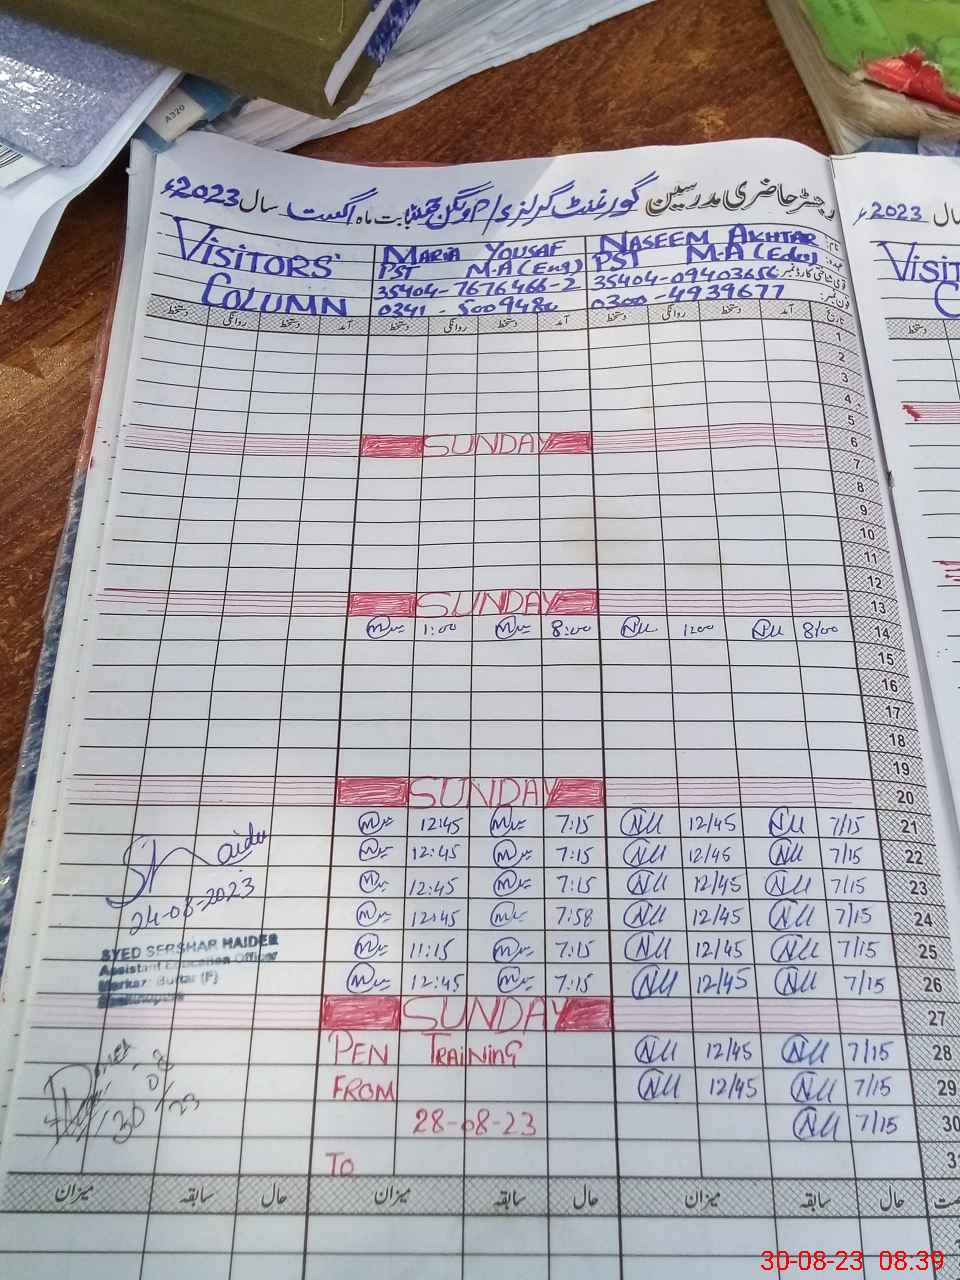 A320
رجسٹر حاضری مدرسین گورنمنٹ گرلز بابت ماہ اگست سال 2023ء
2023ء
VISITORS' COLUMN
MARIA YOUSAF
PST M-A (Eng)
35404-7676466-2
0341-5009480
NASEEM AKHTAR
PST M-A (Edu)
0300-4939677
تاریخ آمد دستخط روانگی دستخط آمد دستخط روانگی دستخط آمد دستخط روانگی دستخط
1
2
3
4
5
SUNDAY 6
7
8
9
10
11
12
SUNDAY 13
1:00 8:00 1200 8/00 14
15
16
17
18
19
SUNDAY 20
12:45 7:15 NU 12/45 NU 7/15 21
12:45 7:15 NU 12/45 NU 7/15 22
12:45 7:15 NU 12/45 NU 7/15 23
12:45 7:58 NU 12/45 NU 7/15 24
11:15 7:15 NU 12/45 NU 7/15 25
12:45 7:15 NU 12/45 NU 7/15 26
Haider
24-08-2023
SYED SERSHAR HAIDER
Assistant Education Officer
Markaz: Buttar (F)
SUNDAY 27
PEN TRAINING NU 12/45 NU 7/15 28
FROM NU 12/45 NU 7/15 29
28-08-23 NU 7/15 30
TO 31
حال سابقہ میزان حال سابقہ میزان حال سابقہ میزان
30-08-23 08:39